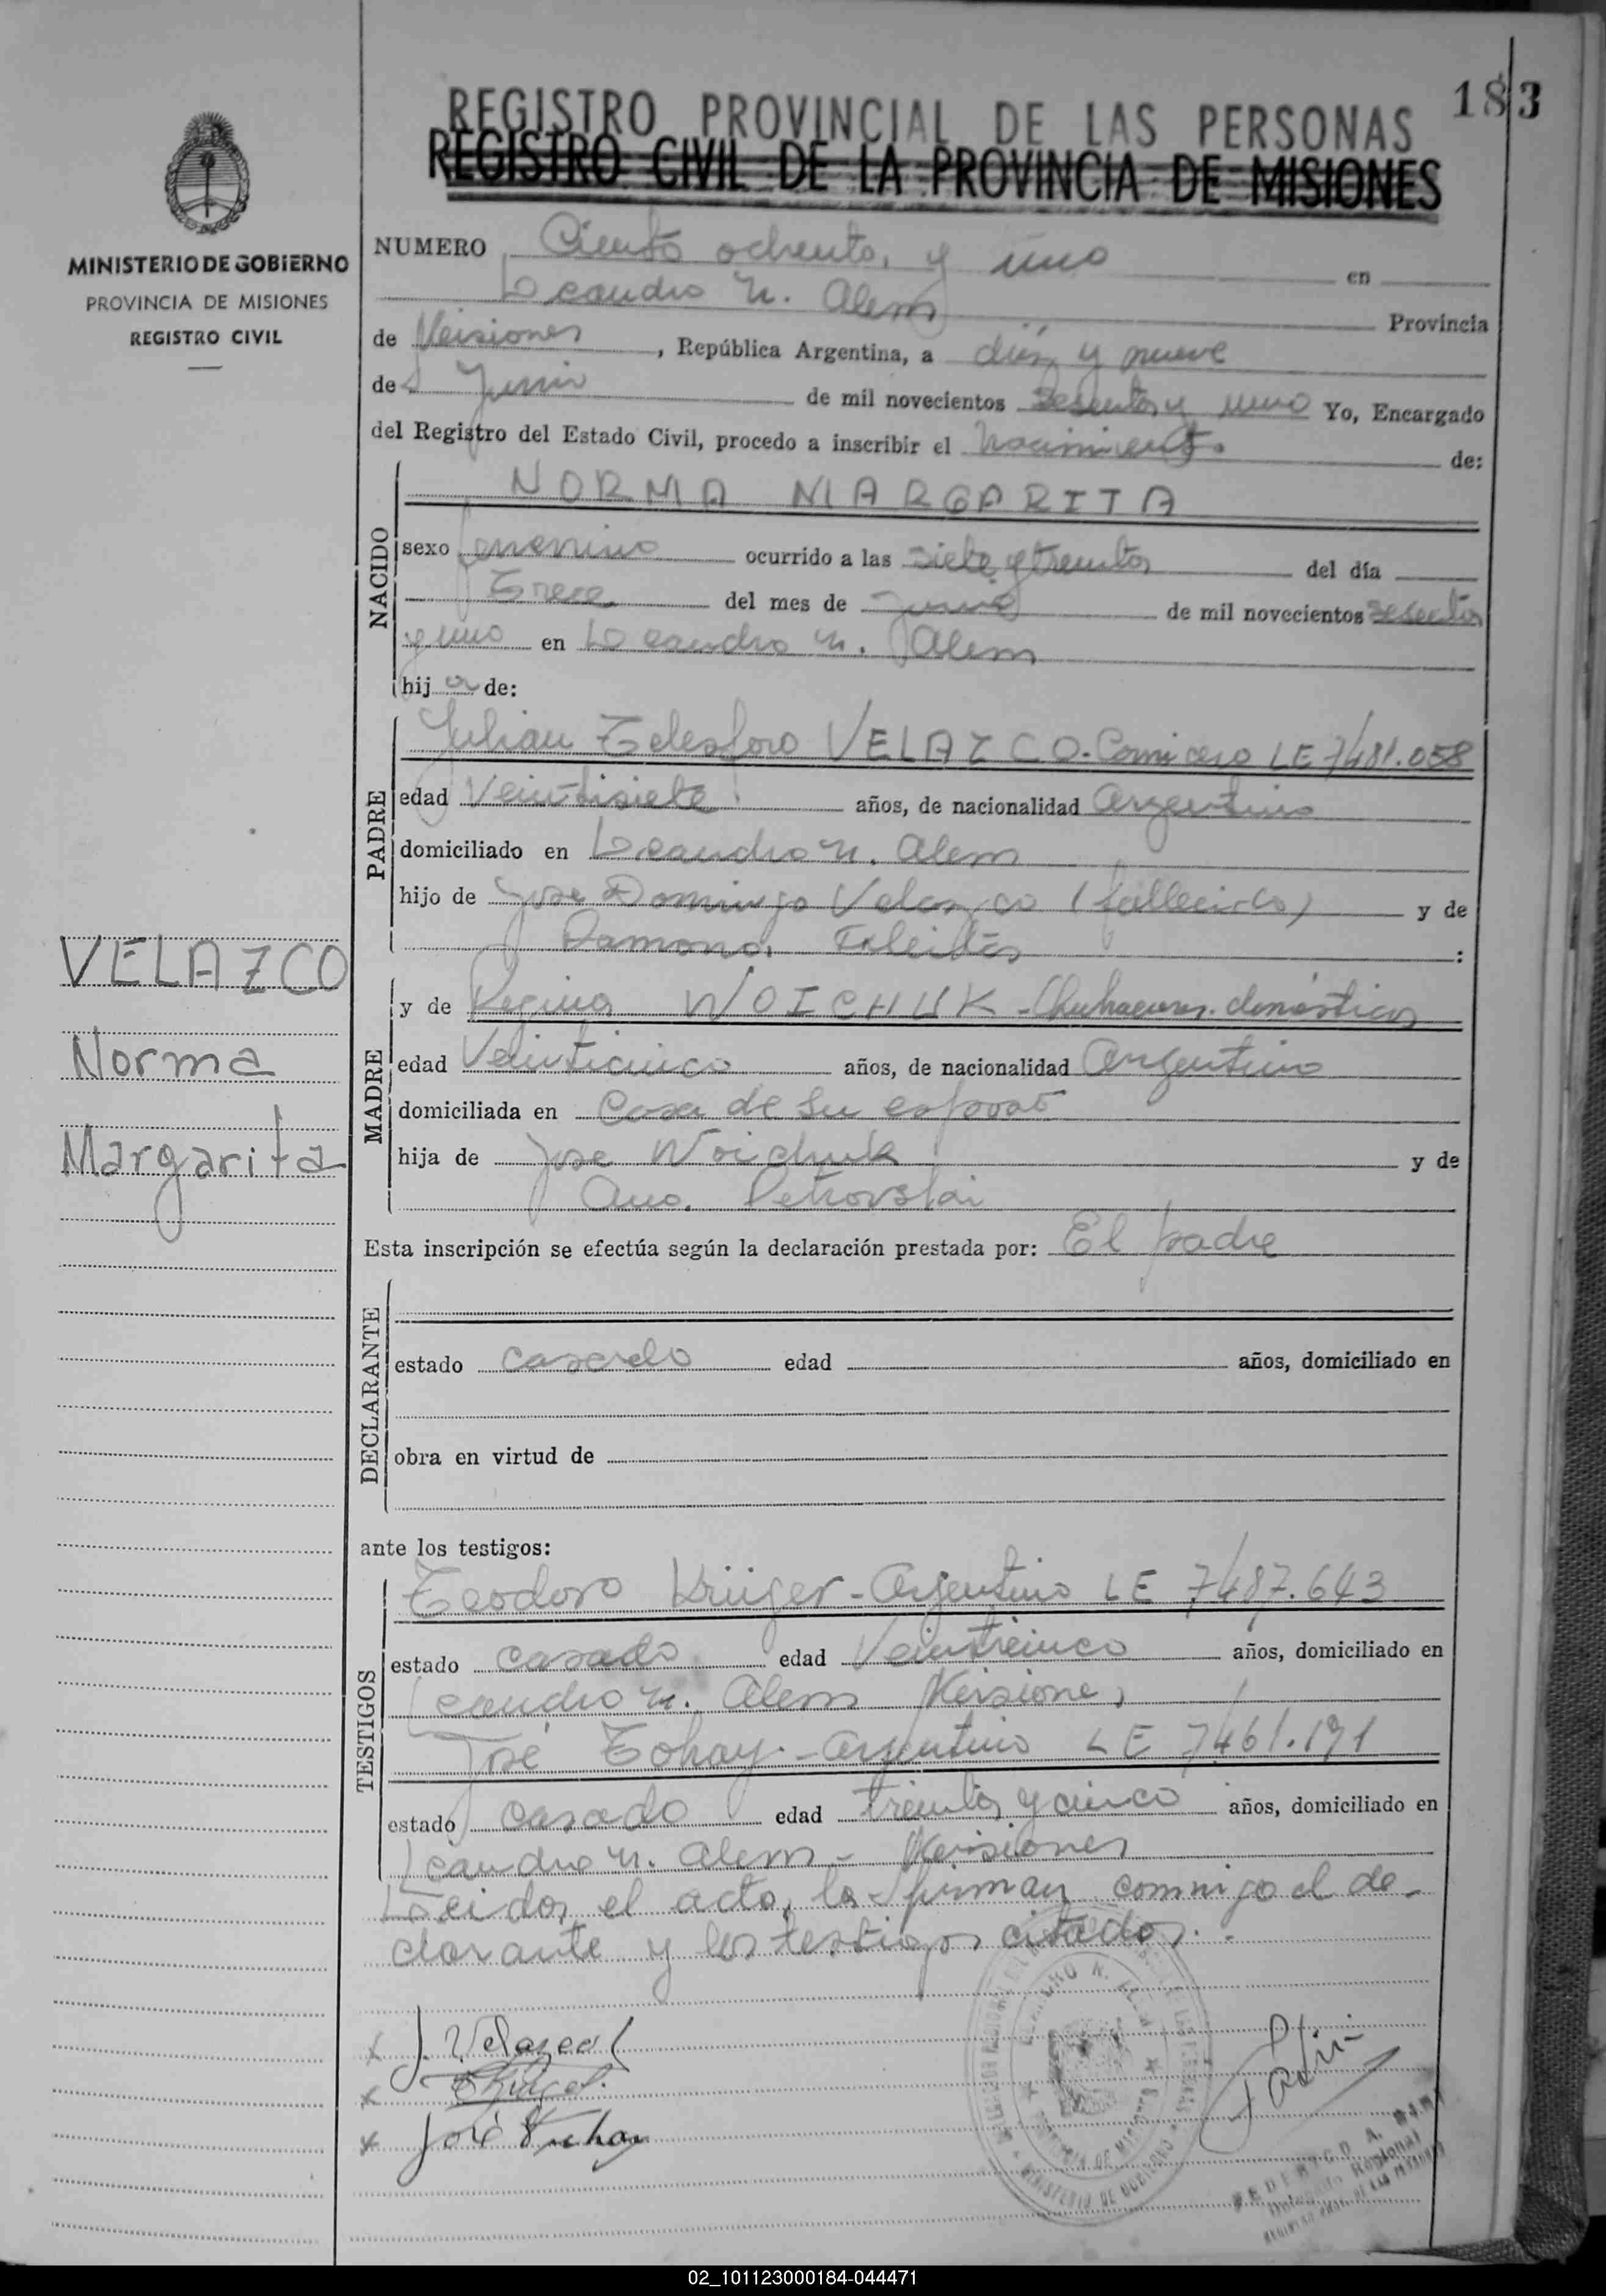 183
REGISTRO PROVINCIAL DE LAS PERSONAS
REGISTRO CIVIL DE LA PROVINCIA DE MISIONES
MINISTERIO DE GOBIERNO
PROVINCIA DE MISIONES
REGISTRO CIVIL
NUMERO Ciento ochenta y uno en
Leandro N. Alem Provincia
de Misiones, República Argentina, a diez y nueve
de Junio de mil novecientos sesenta y uno Yo, Encargado
del Registro del Estado Civil, procedo a inscribir el nacimiento de:
NACIDO
NORMA MARGARITA
sexo femenino ocurrido a las siete y treinta del día
Trece del mes de Junio de mil novecientos sesenta
y uno en Leandro N. Alem
hija de:
PADRE
Julian Telesforo VELAZCO - LE 7481.058
edad Veintisiete años, de nacionalidad Argentino
domiciliado en Leandro N. Alem
hijo de Jose Domingo Velazco (fallecido) y de
Ramona :
MADRE
y de Regina WOICHUK - Quehaceres domésticos
edad Veinticinco años, de nacionalidad Argentina
domiciliada en Casa de su esposo
hija de Jose Woichuk y de
Ana
Esta inscripción se efectúa según la declaración prestada por: El padre
DECLARANTE
estado casado edad años, domiciliado en
obra en virtud de
ante los testigos:
TESTIGOS
Teodoro Krüger - Argentino LE 7487.643
estado casado edad Veinticinco años, domiciliado en
Leandro N. Alem Misiones
José - Argentino LE 7461.191
estado casado edad treinta y cinco años, domiciliado en
Leandro N. Alem - Misiones
Leida el acta, la firman conmigo el de-
clarante y los testigos citados.
VELAZCO
Norma
Margarita
x J. Velazco
x
x José
FEDERICO A.
Delegado Regional
REGISTRO PROV. DE LAS PERSONAS
02_101123000184-044471